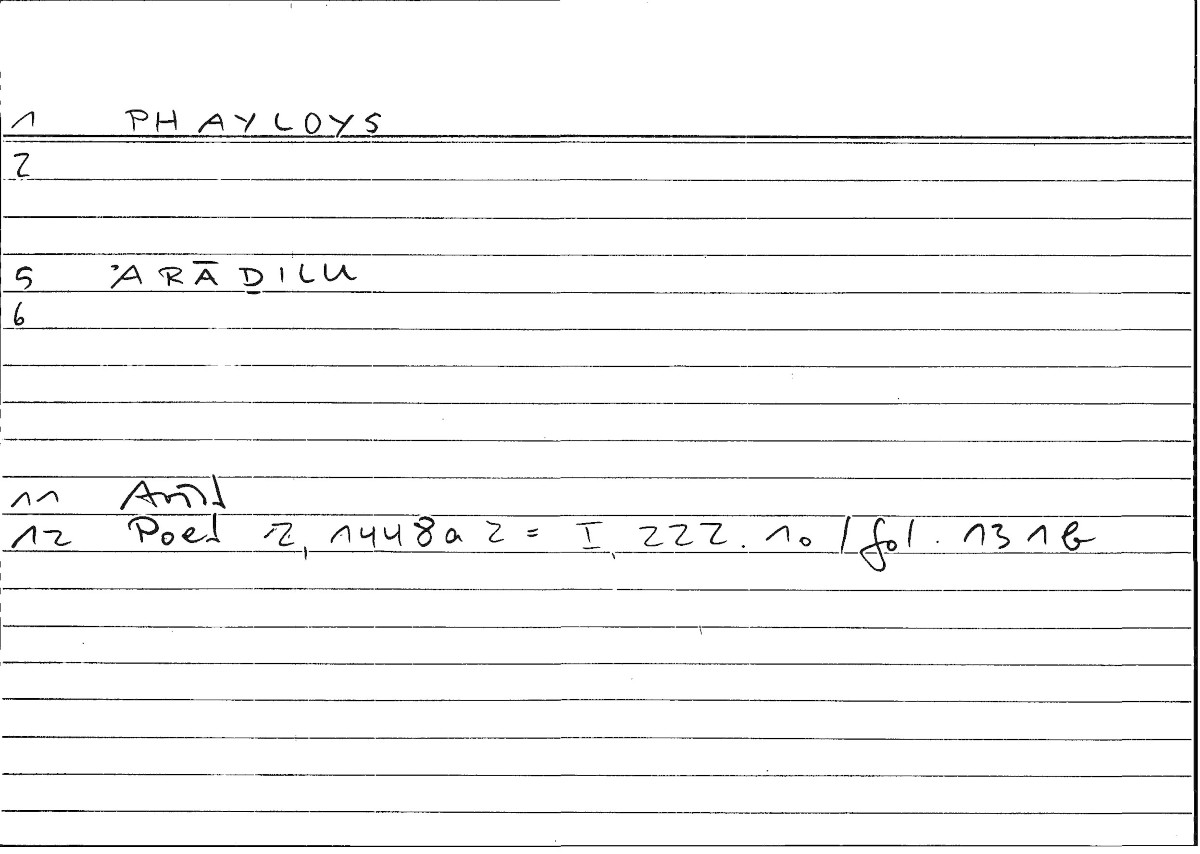 1 PHAYLOYS
2
5 ʾARĀḎILU
6
11 Arist
12 Poet 2, 1448a 2 = I, 222.10 / fol. 131b